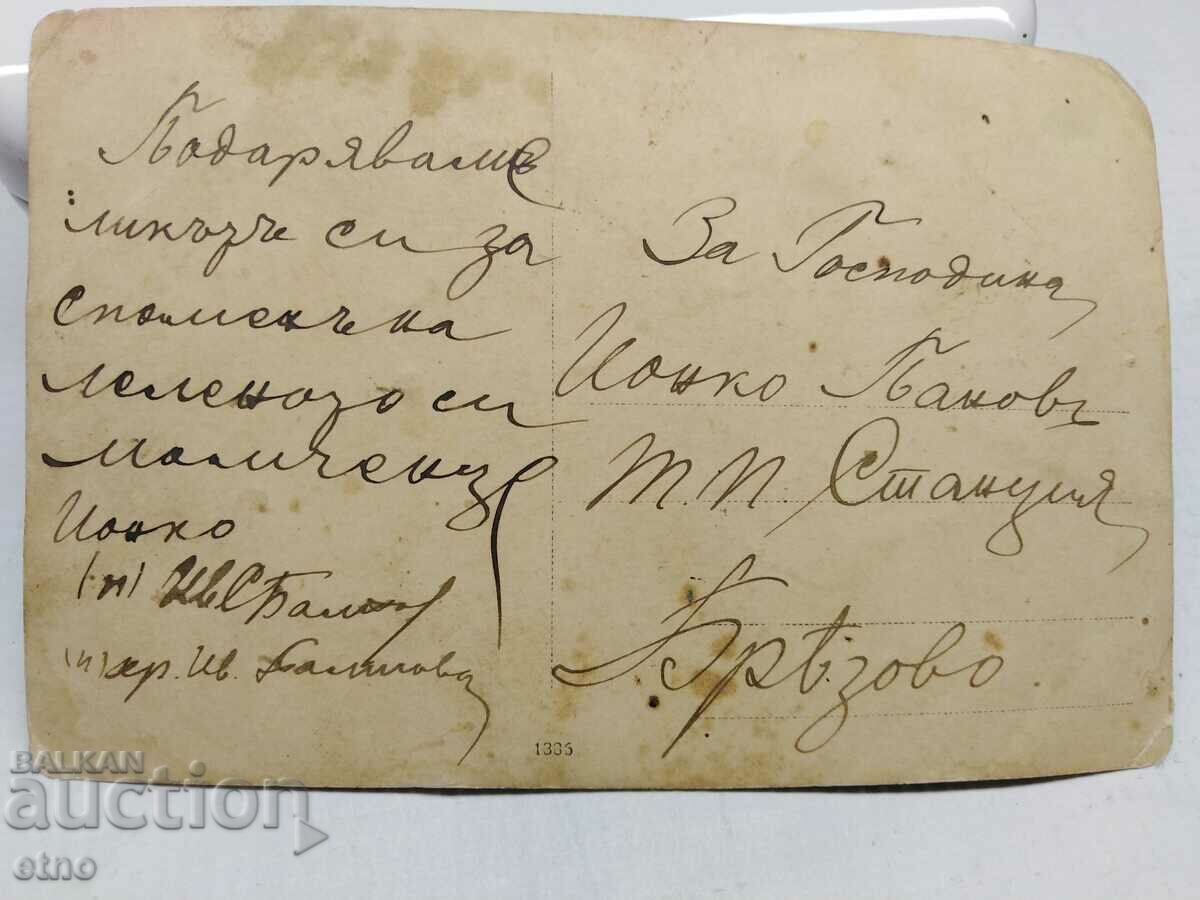 Подарявамъ
ликътъ си за
споменъ на
леленото си
момченце
Ионко
(п) Ив С Балинов
(п) хр. Ив. Балинова
За Господина
Ионко Пановъ
Т. П. Станция
Брѣзово.
1336
BALKAN
auction
etno